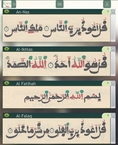 An-Nas
قل اعوذ برب الناس ملك الناس
Al-Ikhlas
قل هو الله احد الله الصمد
Al-Fatihah
بسم الله الرحمن الرحيم
Al-Falaq
قل اعوذ برب الفلق من شر ما خلق